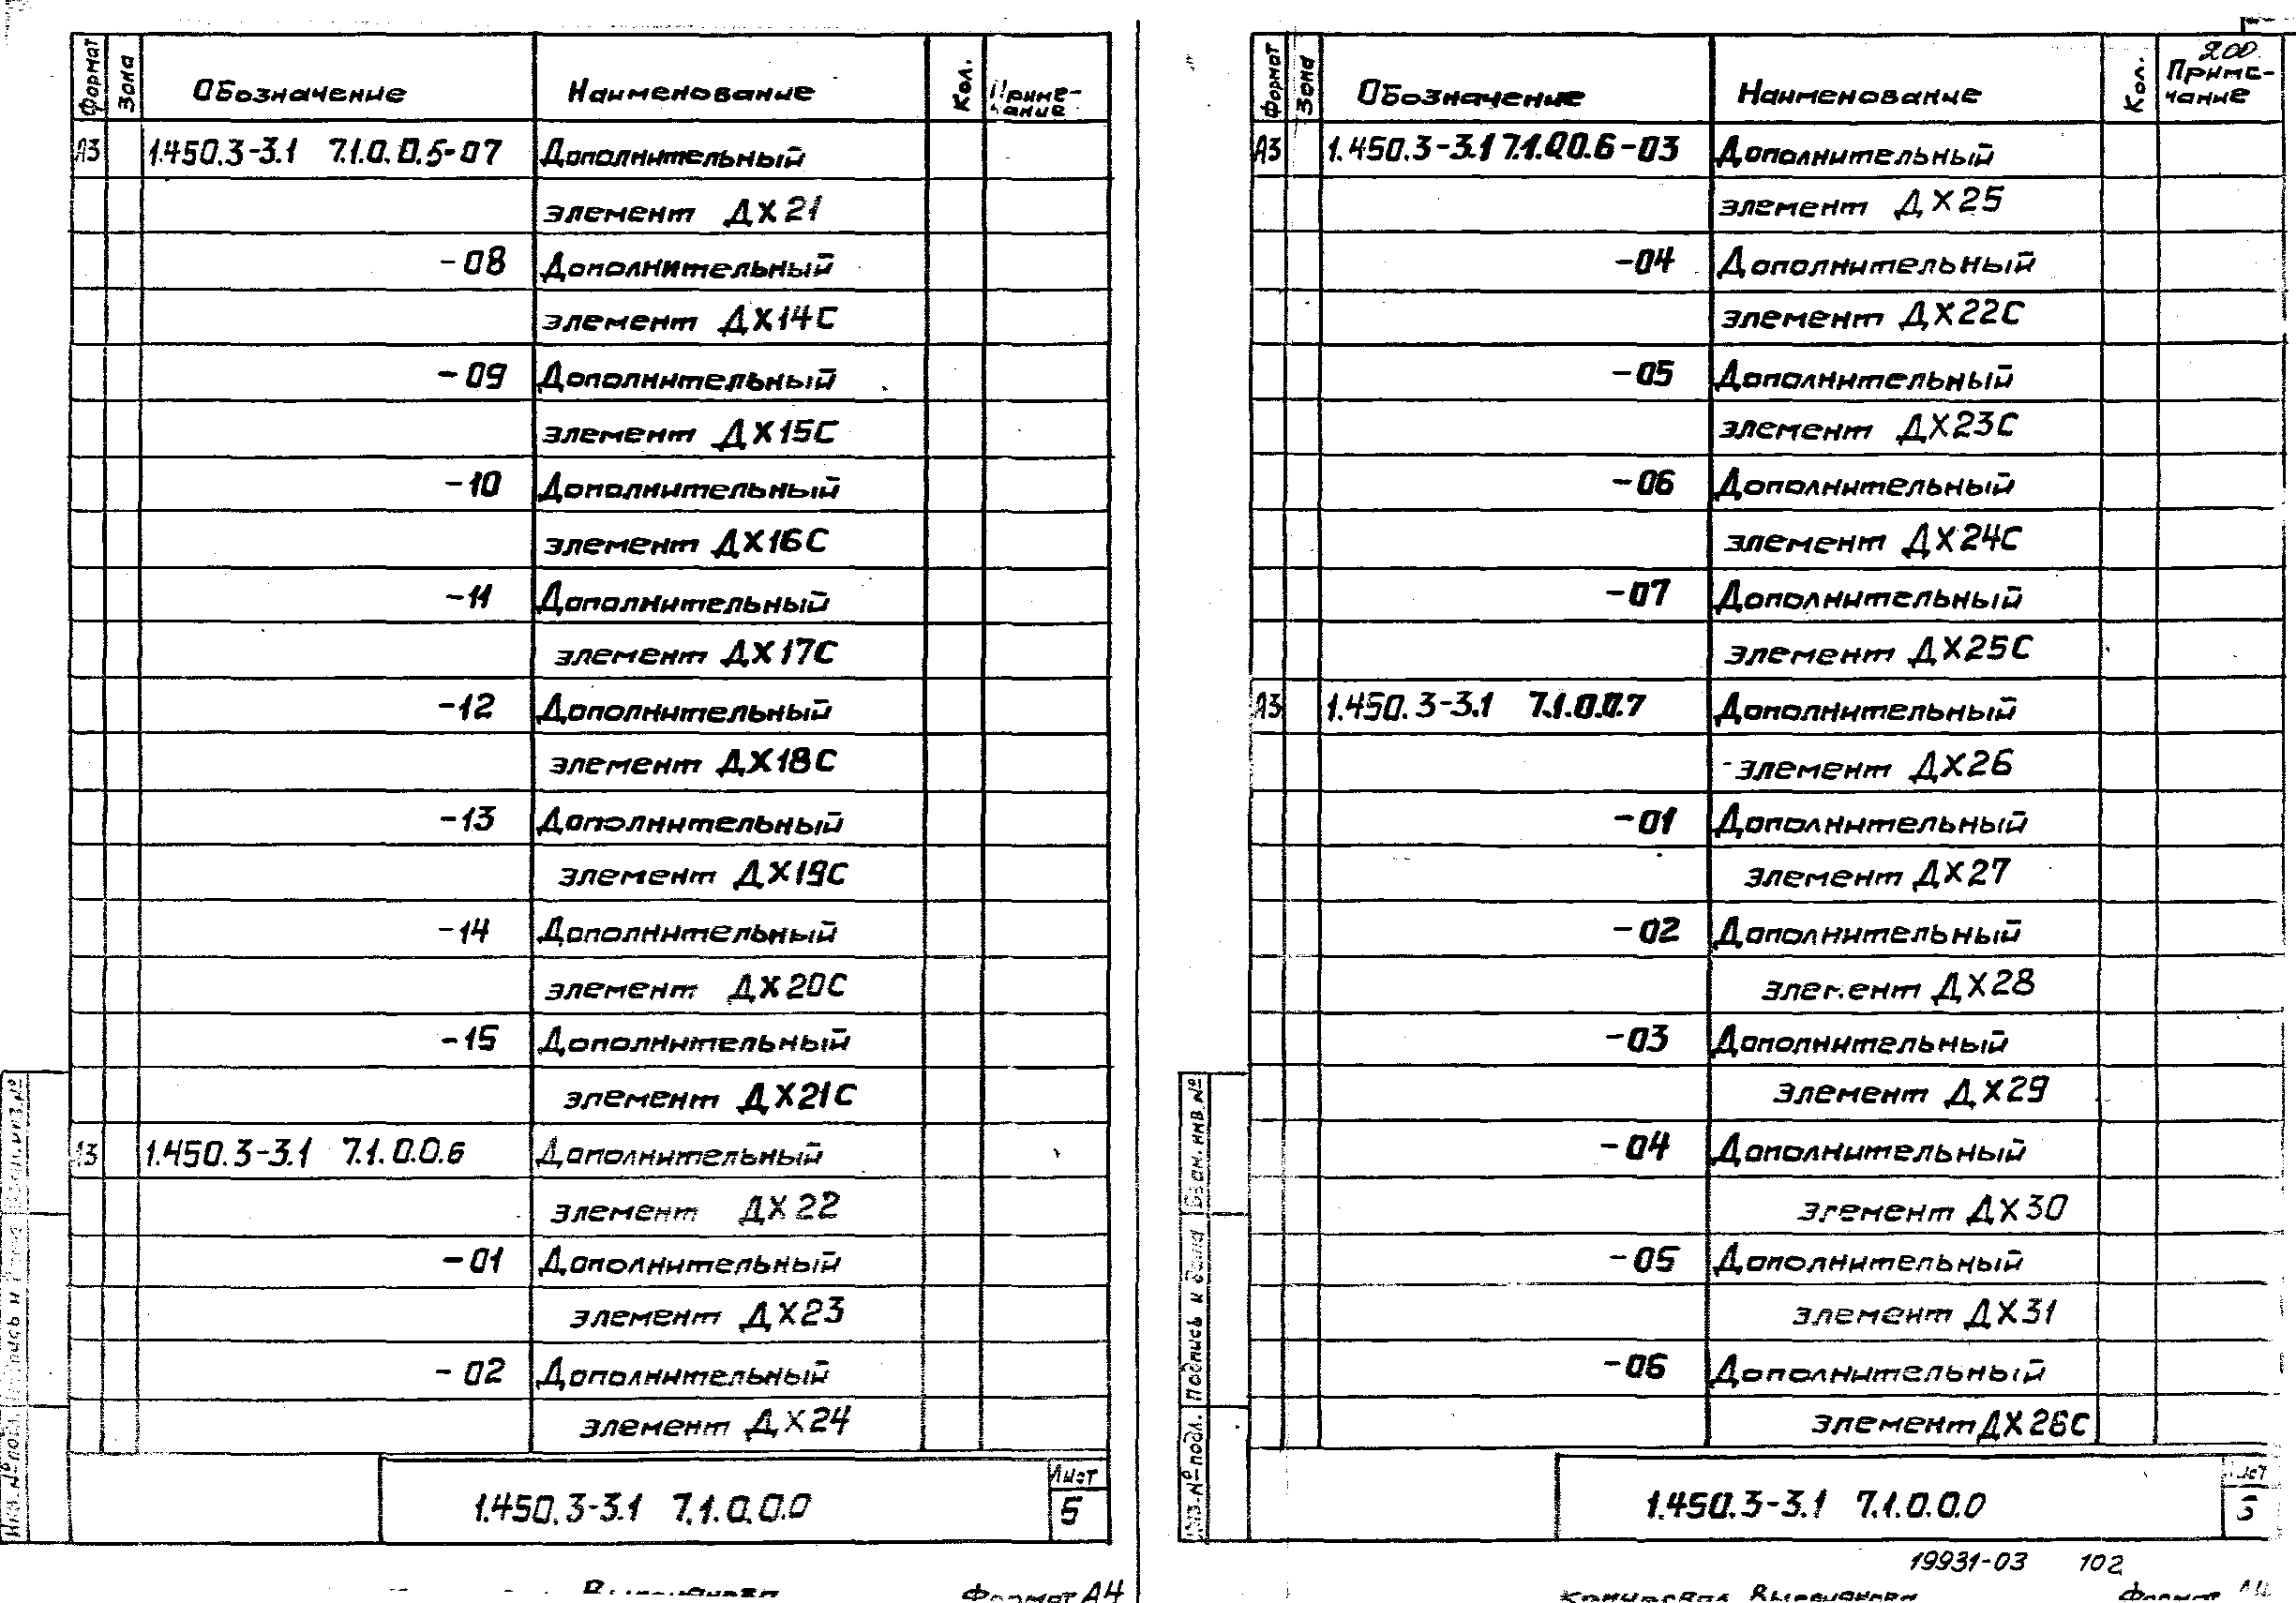 Формат Зона Обозначение Наименование Кол. Приме-
чание
А3 1.450.3-3.1 7.1.0.0.5-07 Дополнительный
элемент ДХ21
-08 Дополнительный
элемент ДХ14С
-09 Дополнительный
элемент ДХ15С
-10 Дополнительный
элемент ДХ16С
-11 Дополнительный
элемент ДХ17С
-12 Дополнительный
элемент ДХ18С
-13 Дополнительный
элемент ДХ19С
-14 Дополнительный
элемент ДХ20С
-15 Дополнительный
элемент ДХ21С
А3 1.450.3-3.1 7.1.0.0.6 Дополнительный
элемент ДХ22
-01 Дополнительный
элемент ДХ23
-02 Дополнительный
элемент ДХ24
Взам.инв.№
Подпись и
Инв.№подл.
1.450.3-3.1 7.1.0.0.0
Лист
5
Формат А4
200
Формат Зона Обозначение Наименование Кол. Приме-
чание
А3 1.450.3-3.1 7.1.0.0.6-03 Дополнительный
элемент ДХ25
-04 Дополнительный
элемент ДХ22С
-05 Дополнительный
элемент ДХ23С
-06 Дополнительный
элемент ДХ24С
-07 Дополнительный
элемент ДХ25С
А3 1.450.3-3.1 7.1.0.0.7 Дополнительный
элемент ДХ26
-01 Дополнительный
элемент ДХ27
-02 Дополнительный
элемент ДХ28
-03 Дополнительный
элемент ДХ29
-04 Дополнительный
элемент ДХ30
-05 Дополнительный
элемент ДХ31
-06 Дополнительный
элемент ДХ26С
Взам.инв.№
Подпись и дата
Инв.№подл.
1.450.3-3.1 7.1.0.0.0
Лист
19931-03 102
Копировал
Формат